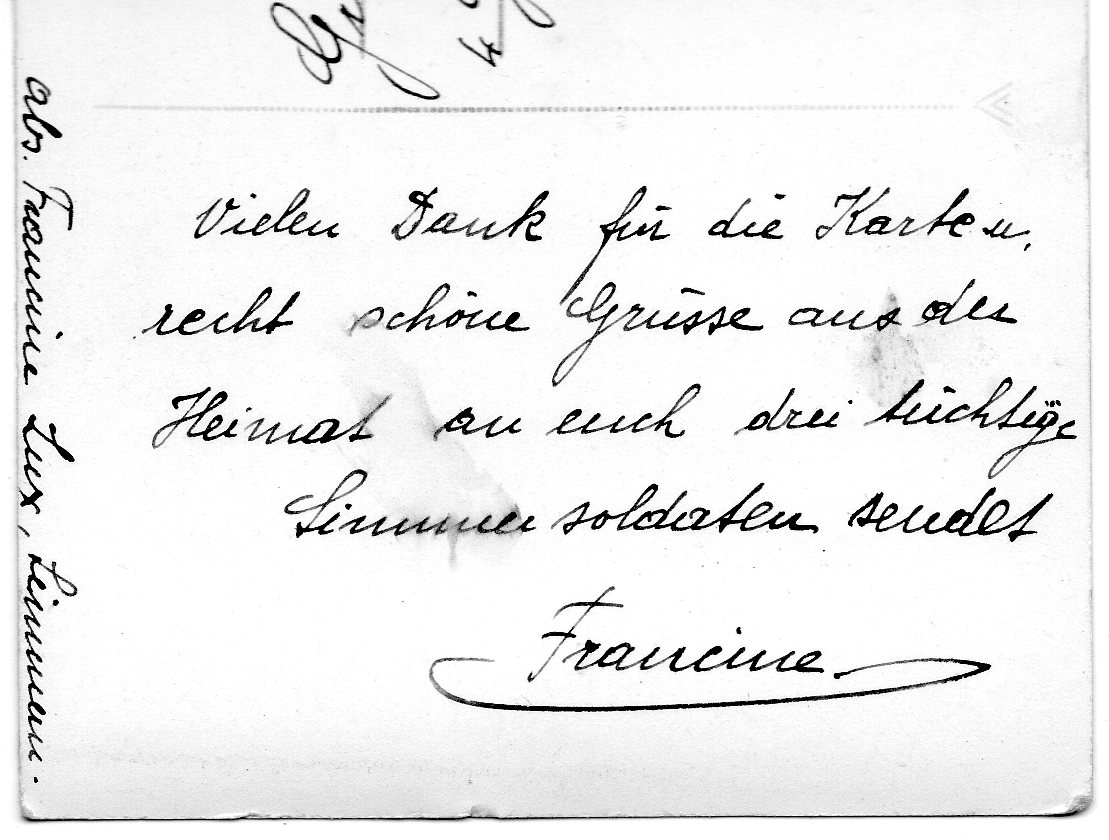 Vielen Dank für die Karte u.
recht schöne Grüsse aus der
Heimat an euch drei tüchtige
Simmer soldaten sendet
Francine
abs. Francine Lux, Simmern.